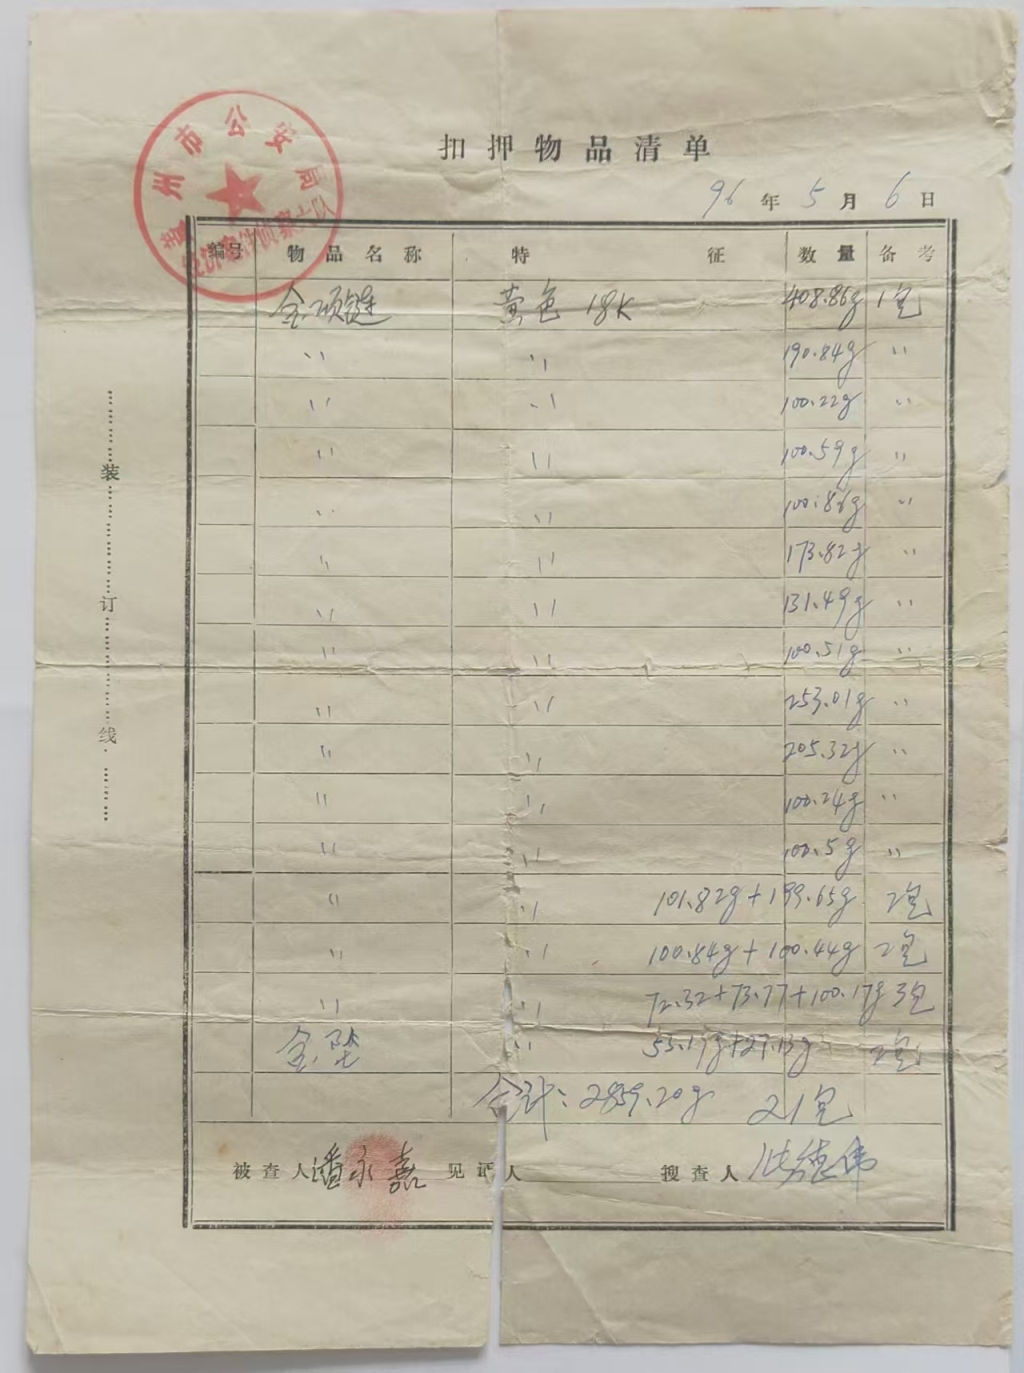 州市公安局
扣押物品清单
96年5月6日
编号 物品名称 特征 数量 备考
金项链 黄色 18K 408.86g 1包
〃 〃 190.84g 〃
〃 〃 100.22g 〃
〃 〃 100.59g 〃
〃 〃 100.86g 〃
〃 〃 173.82g 〃
〃 〃 131.49g 〃
〃 〃 100.51g 〃
〃 〃 253.01g 〃
〃 〃 205.32g 〃
〃 〃 100.24g 〃
〃 〃 100.5g 〃
〃 〃 101.82g+199.65g 2包
〃 〃 100.84g+100.44g 2包
〃 〃 72.32+73.77+100.17g 3包
金坠 〃 2包
合计:2859.20g 21包
被查人 潘永嘉 见证人 搜查人 德伟
装订线